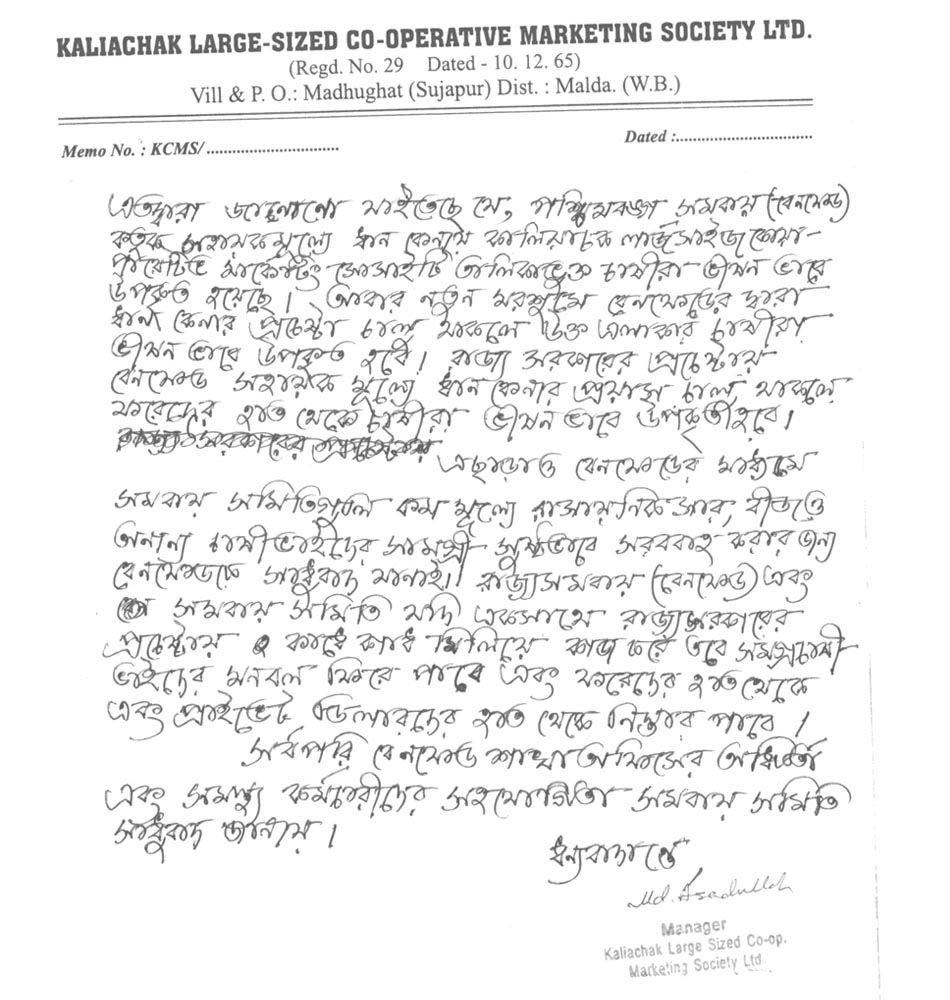 KALIACHAK LARGE-SIZED CO-OPERATIVE MARKETING SOCIETY LTD.
(Regd. No. 29 Dated - 10. 12. 65)
Vill & P. O.: Madhughat (Sujapur) Dist. : Malda. (W.B.)
Memo No. : KCMS/................................
Dated :................................
এতদ্বারা জানানো যাইতেছে যে, পশ্চিমবঙ্গ সমবায় (বেনফেড)
কর্তৃক সহায়ক মূল্যে ধান কেনায় কালিয়াচক লার্জ সাইজ কোয়া-
পারেটিভ মার্কেটিং সোসাইটি তালিকাভুক্ত চাষীরা ভীষন ভাবে
উপকৃত হয়েছে। আবার নতুন মরশুমে বেনফেডের দ্বারা
ধান কেনার প্রচেষ্টা চালু থাকলে উক্ত এলাকার চাষীরা
ভীষন ভাবে উপকৃত হবে। রাজ্য সরকারের প্রচেষ্টায়
বেনফেড সহায়ক মূল্যে ধান কেনার প্রয়াস চালু থাকলে
ফারেদের হাত থেকে চাষীরা ভীষন ভাবে উপকৃত হবে।
এছাড়াও বেনফেডের মাধ্যমে
সমবায় সমিতিগুলি কম মূল্যে রাসায়নিক সার, বীজ ও
অনান্য চাষীভাইদের সামগ্রী সুষ্ঠভাবে সরবরাহ করার জন্য
বেনফেডকে সাধুবাদ জানাই। রাজ্যসমবায় (বেনফেড) এবং
সমবায় সমিতি যদি একসাথে রাজ্যসরকারের
প্রচেষ্টায় কাধে কাধ মিলিয়ে কাজ করে তবে সমগ্র চাষী
ভাইদের মনবল ফিরে পাবে এবং ফারেদের হাত থেকে
এবং প্রাইভেট ডিলারদের হাত থেকে নিস্তার পাবে।
সর্বপরি বেনফেড শাখা অফিসের অধিকর্তা
এবং সমস্ত কর্মচারীদের সহযোগিতা সমবায় সমিতি
সাধুবাদ জানায়।
ধন্যবাদান্তে
Md. Asadullah
Manager
Kaliachak Large Sized Co-op.
Marketing Society Ltd.